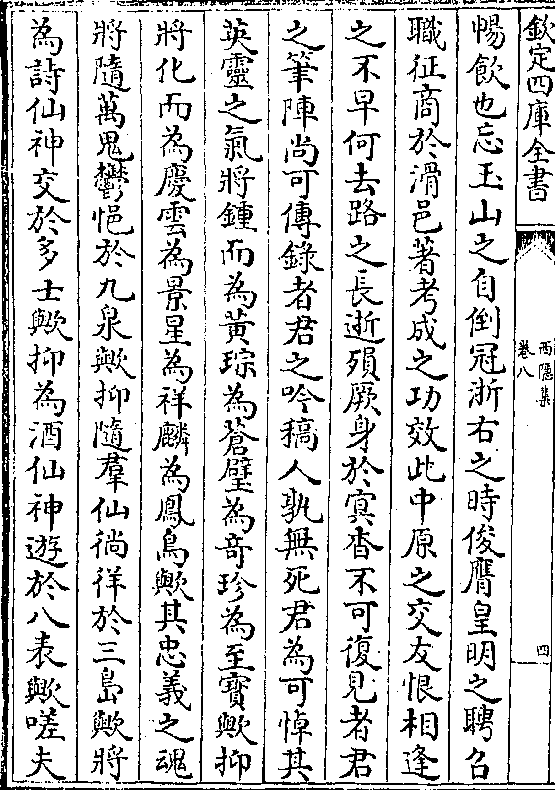 欽定四庫全書
西隱集
卷八
四
暢飲也忘玉山之自倒冠浙右之時俊膺皇明之聘召
職征商於滑邑著考成之功效此中原之交友恨相逢
之不早何去路之長逝殞厥身於冥杳不可復見者君
之筆陣尚可傳錄者君之吟稿人孰無死君為可悼其
英靈之氣將鍾而為黃琮為蒼璧為奇珍為至寶歟抑
將化而為慶雲為景星為祥麟為鳳鳥歟其忠義之魂
將隨萬鬼鬱悒於九泉歟抑隨羣仙徜徉於三島歟將
為詩仙神交於多士歟抑為酒仙神遊於八表歟嗟夫